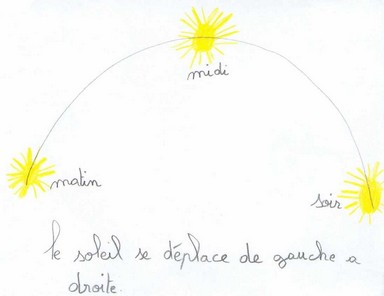 midi
matin
soir
le soleil se déplace de gauche a
droite.